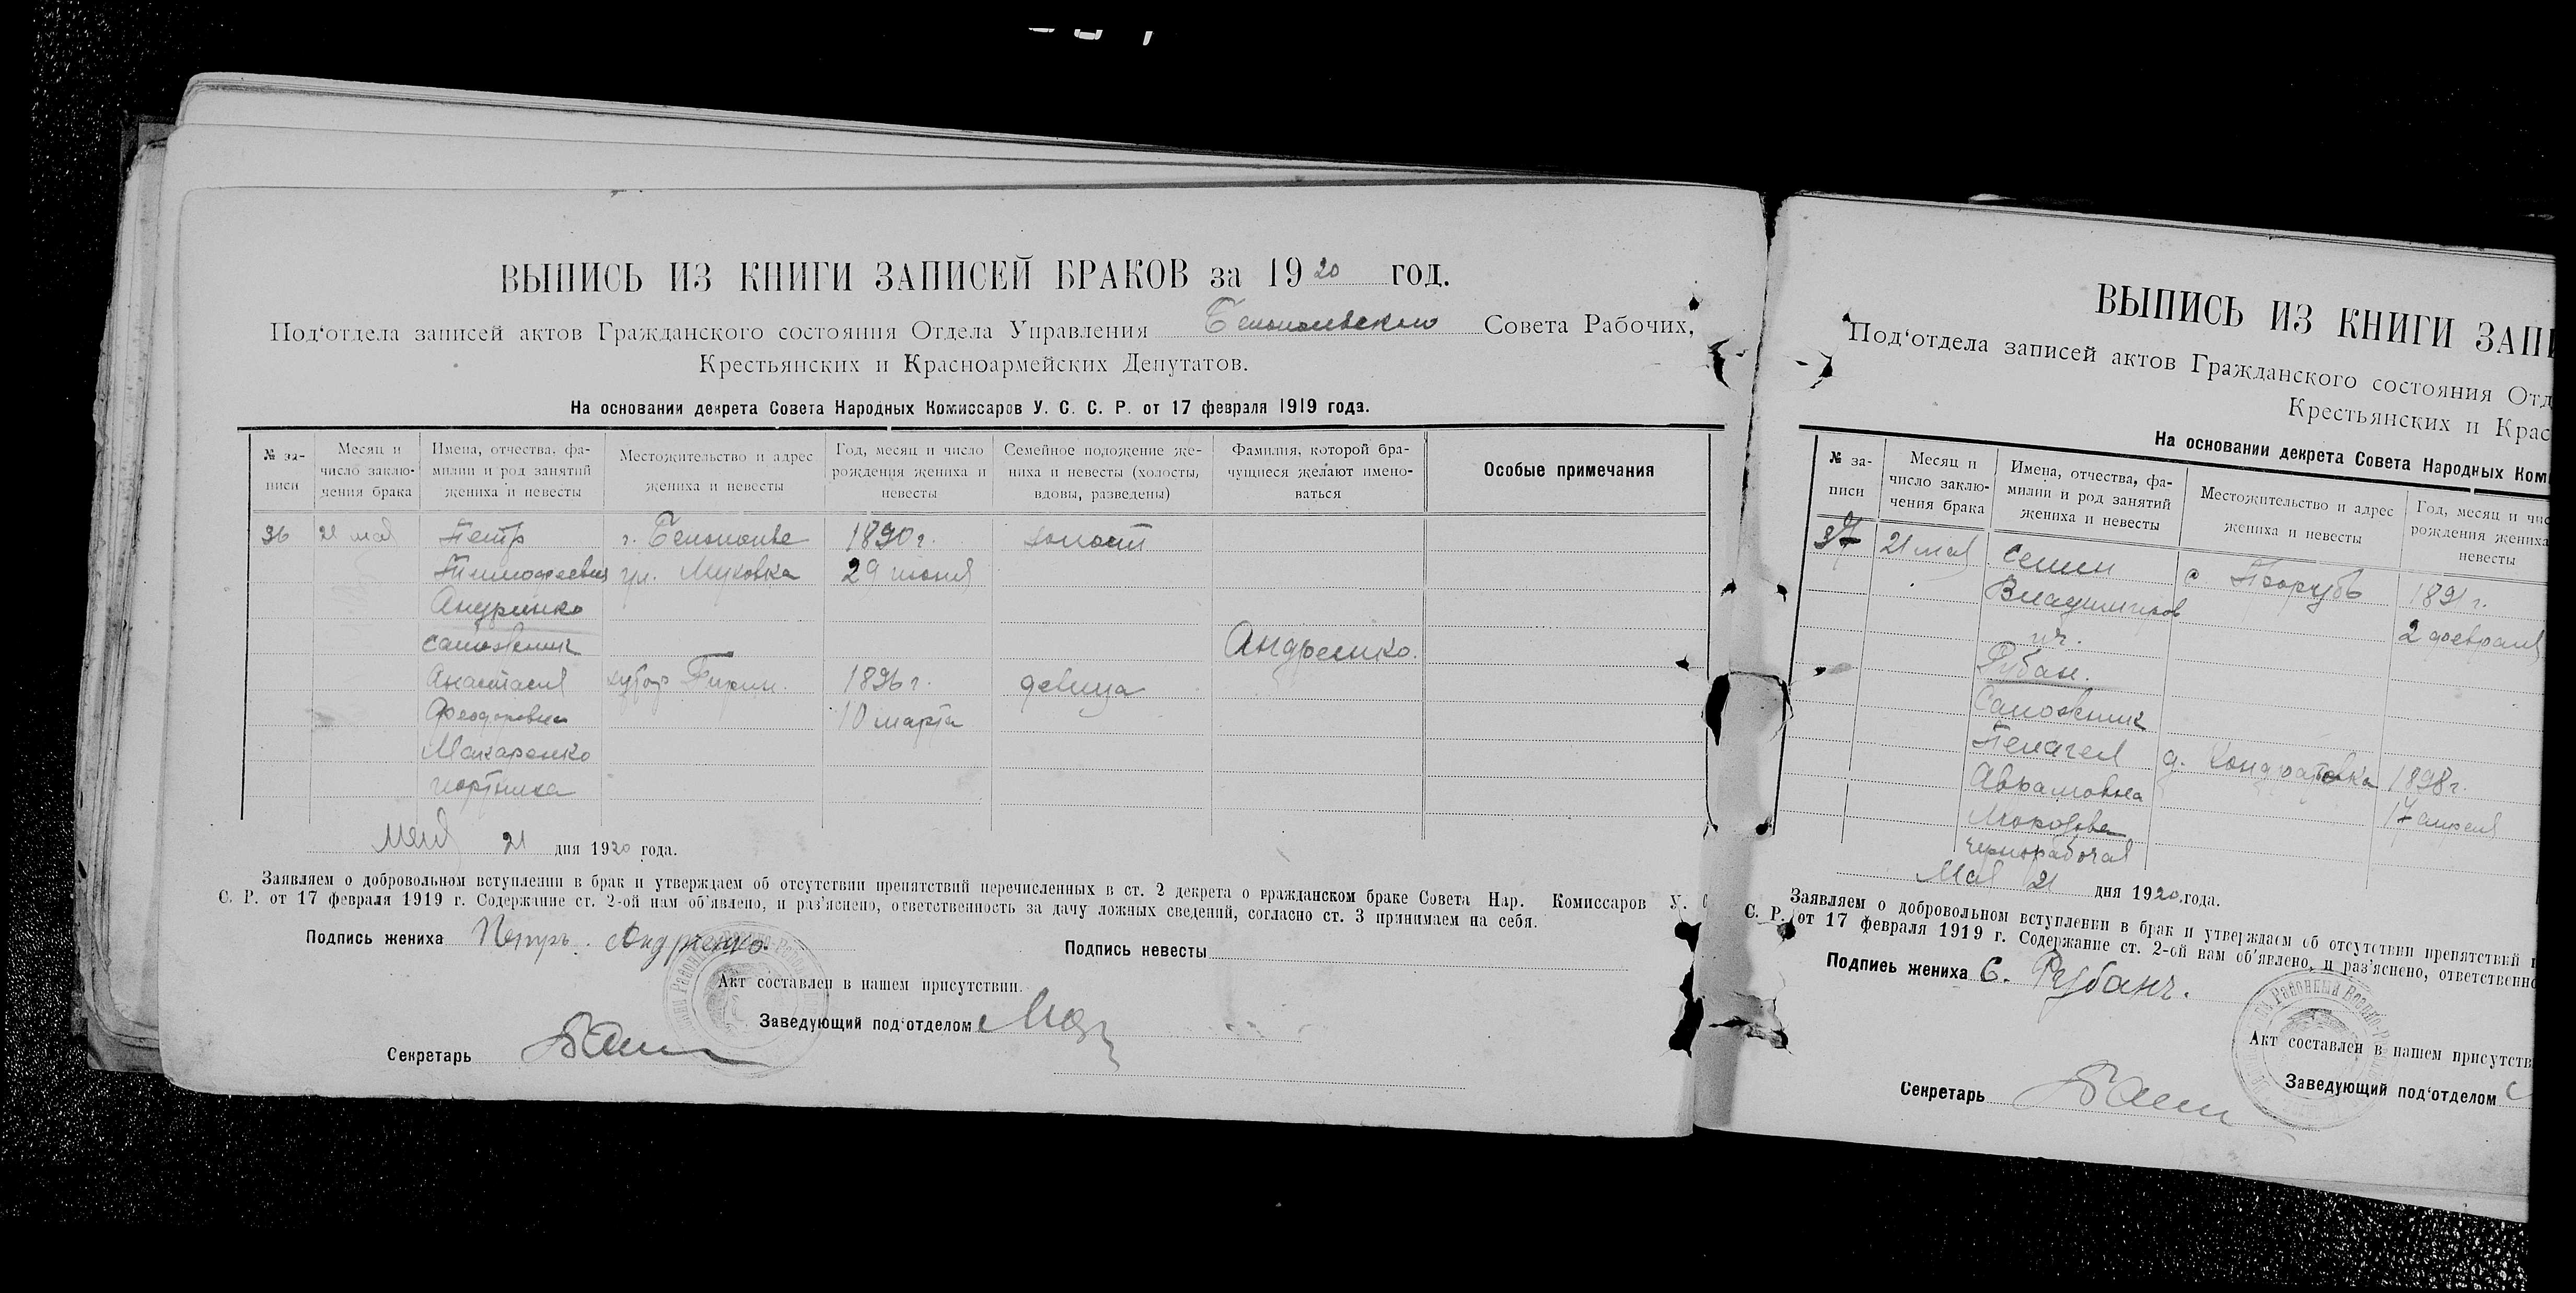 ВЫПИСЬ ИЗ КНИГИ ЗАПИСЕЙ БРАКОВ за 1920 год.
Под‘отдела записей актов Гражданского состояния Отдела Управления Белопольского Совета Рабочих,
Крестьянских и Красноармейских Депутатов.
На основании декрета Совета Народных Комиссаров У. С. С. Р. от 17 февраля 1919 года.
№ за- Месяц и Имена, отчества, фа- Местожительство и адрес Год, месяц и число Семейное положение же- Фамилия, которой бра- Особые примечания
писи число заклю- милии и род занятий жениха и невесты рождения жениха и ниха и невесты (холосты, чущиеся желают имено-
чения брака жениха и невесты невесты вдовы, разведены) ваться
36 21 мая Петр г. Белополье 1890 г. холост
Тимофеевич ул. 29 июня
Андриенко
сапожник Андреенко.
Анастасия хутор 1896 г. девица
Феодоровна 10 марта
Макаренко
портниха
Мая 21 дня 1920 года.
Заявляем о добровольном вступлении в брак и утверждаем об отсутствии препятствий перечисленных в ст. 2 декрета о гражданском браке Совета Нар. Комиссаров У. С
С. Р. от 17 февраля 1919 г. Содержание ст. 2-ой нам об‘явлено, и раз‘яснено, ответственность за дачу ложных сведений, согласно ст. 3 принимаем на себя.
Подпись жениха Петръ. Андрѣенко. Подпись невесты
Акт составлен в нашем присутствии.
Заведующий под‘отделом
Секретарь
ВЫПИСЬ ИЗ КНИГИ ЗАПИ
Под‘отдела записей актов Гражданского состояния Отд
Крестьянских и Крас
На основании декрета Совета Народных Ком
№ за- Месяц и Имена, отчества, фа- Местожительство и адрес Год, месяц и чис
писи число заклю- милии и род занятий жениха и невесты рождения жениха
чения брака жениха и невесты невесты
37 21 мая Семен с Проруб 1891 г.
Владимиров 2 февраля
ич.
Рубан.
Сапожник
Пелагея д. Кондратовка 1898 г.
Аврамовна 17 апреля
чернорабочая
Мая 21 дня 1920 года.
Заявляем о добровольном вступлении в брак и утверждаем об отсутствии препятствий п
С. Р. от 17 февраля 1919 г. Содержание ст. 2-ой нам об‘явлено, и раз‘яснено, ответственно
Подпись жениха С. Рубанъ.
Акт составлен в нашем присутств
Заведующий под‘отделом
Секретарь